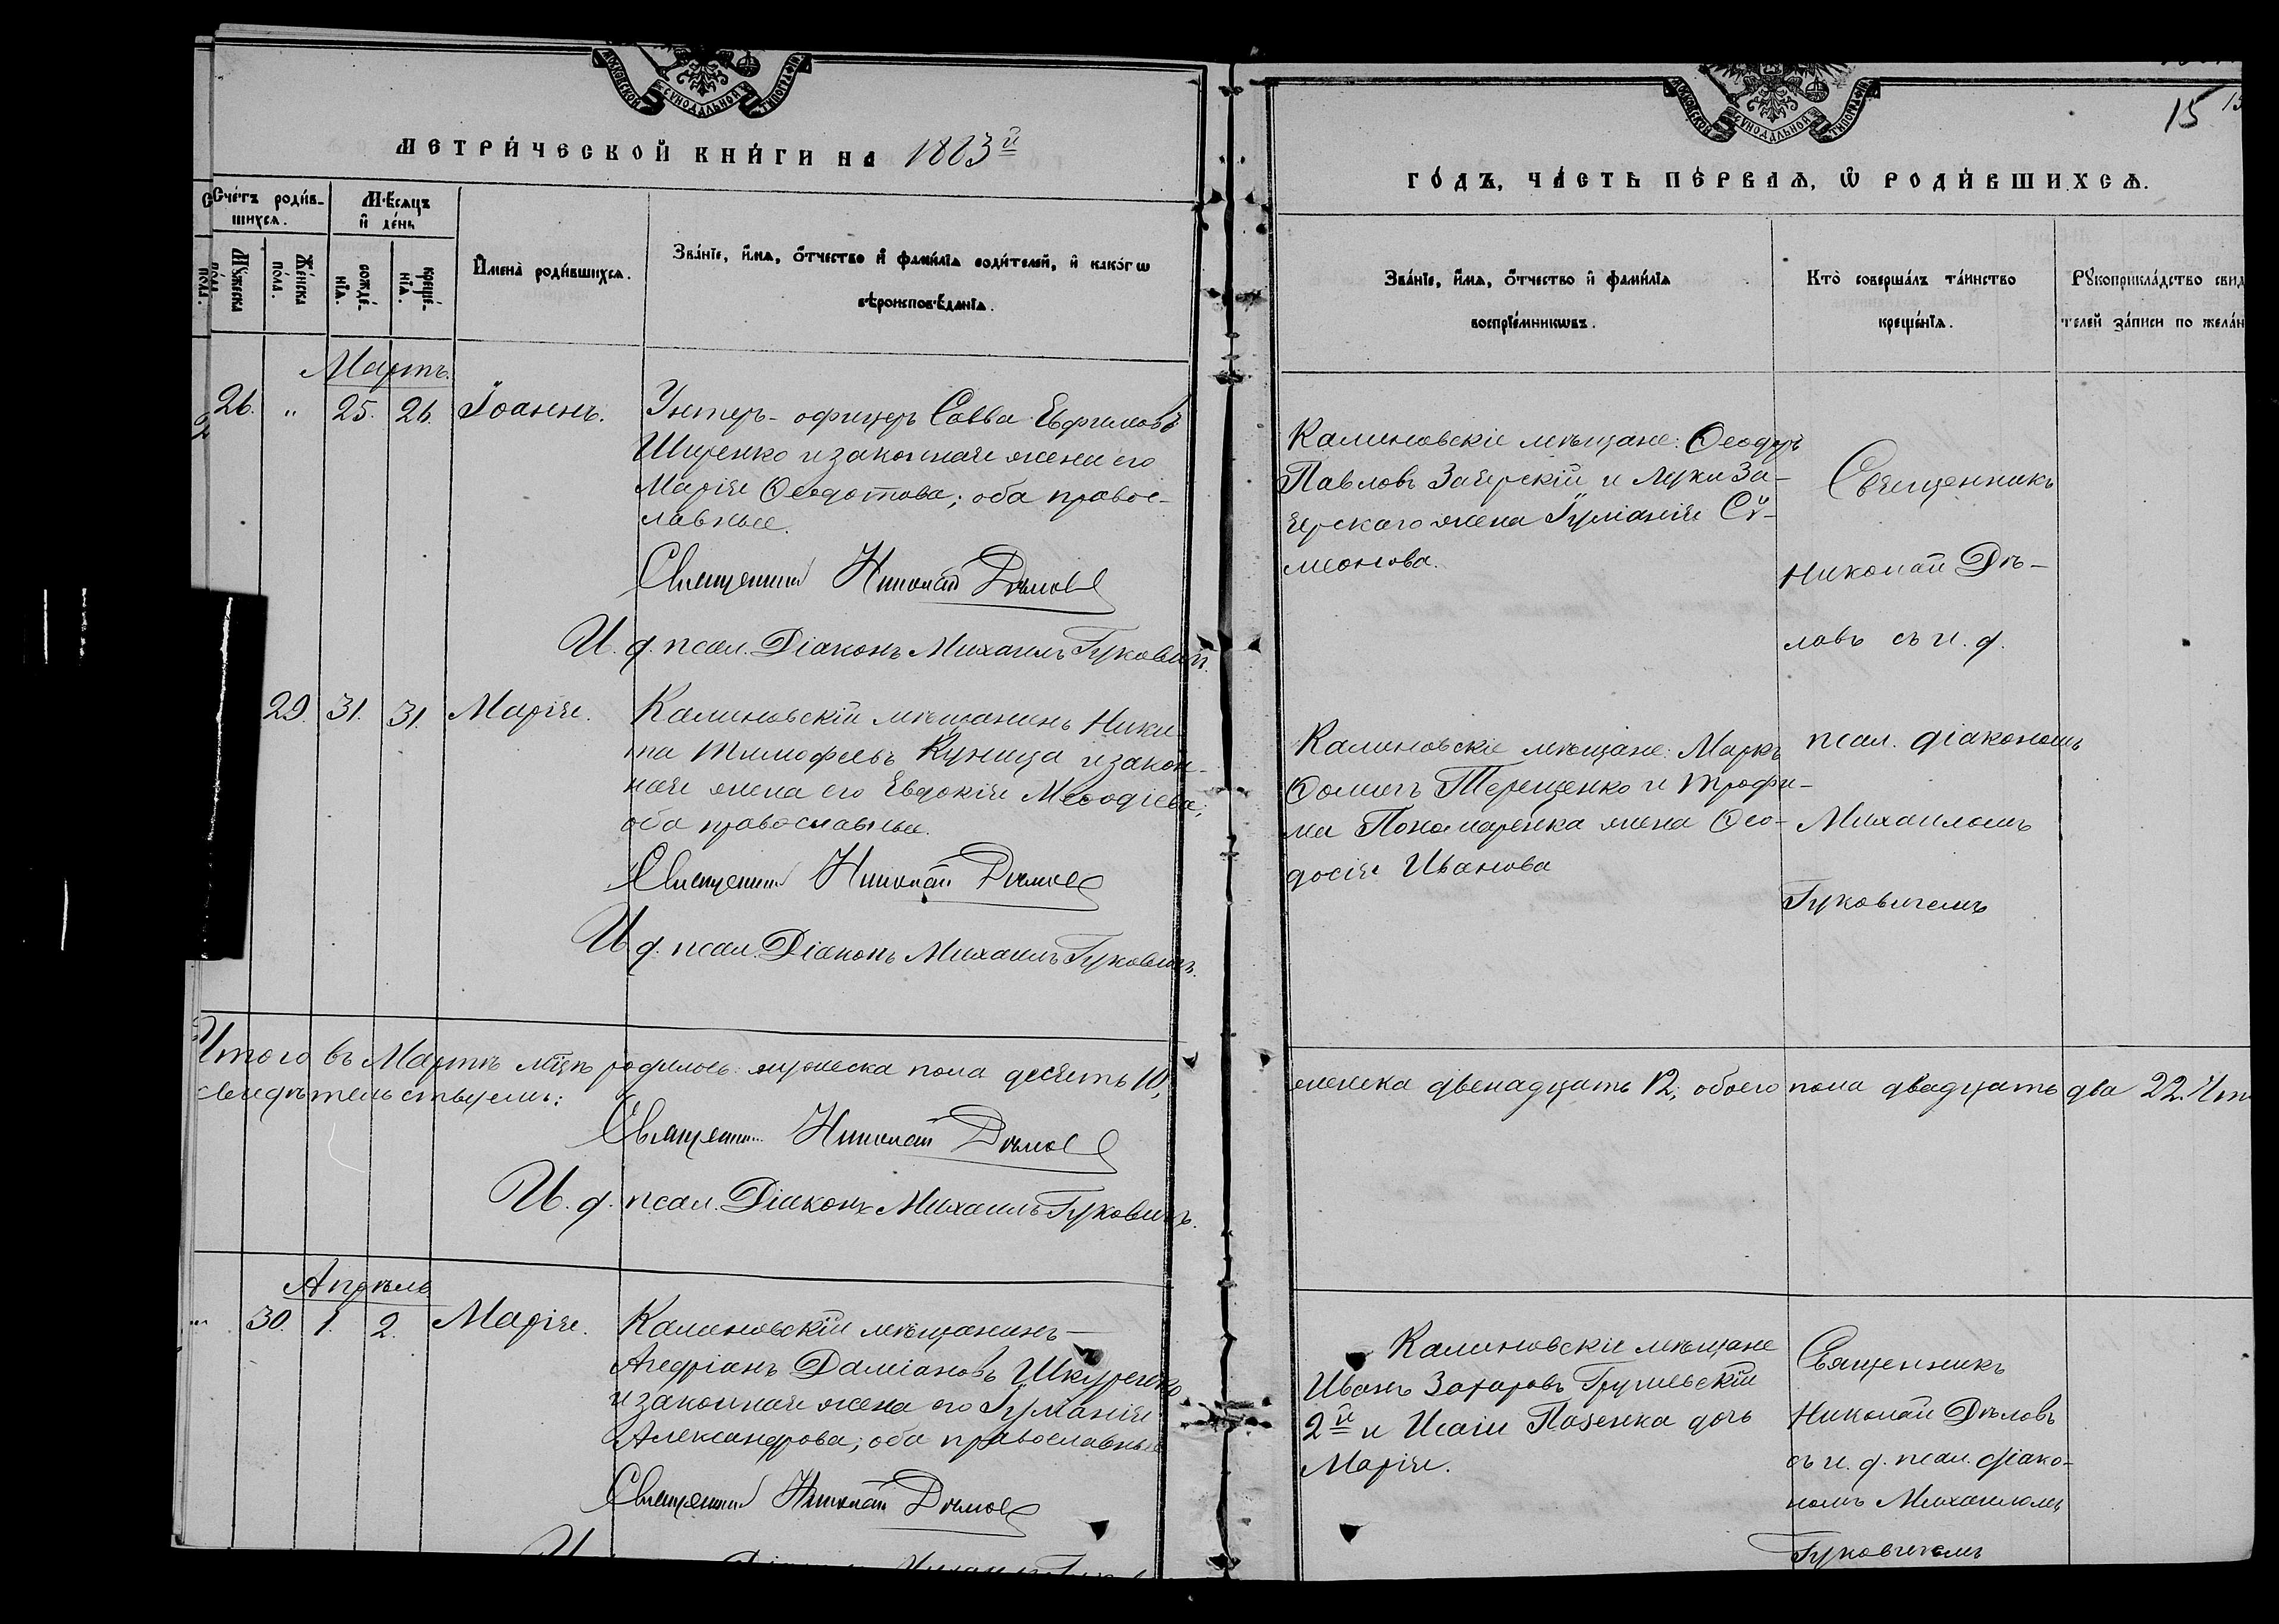 МОСКОВСКОЙ СѴНОДАЛЬНОЙ ТИПОГРАФІИ
МЕТРИ́ЧЕСКОЙ КНИ́ГИ НА 1883й
Сче́тъ роди́в-
шихсѧ.
Мѣ́сѧцъ
и҆ де́нь
Мꙋ́жеска
по́ла.
Же́нска
по́ла.
рожде́-
нїѧ.
креще́-
нїѧ.
И҆мена̀ роди́вшихсѧ.
Зва́нїе, и҆́мѧ, ѻ҆́тчество и҆ фами́лїѧ роди́телей, и҆ како́гѡ
вѣроисповѣ́данїѧ.
Мартъ.
26. " 25. 26. Іоаннъ.
Унтеръ-офицеръ Савва Евфимовъ
Ищенко и законная жена его
Марія Ѳеодотова; оба право-
славные.
Священникъ Николай Дѣловъ
И. д. псал. Діаконъ Михаилъ Гуковичъ.
29. 31. 31. Марія.
Калиновскій мѣщанинъ Ники-
та Тимофеевъ Куница и закон-
ная жена его Евдокія Меѳодіева;
оба православные.
Священникъ Николай Дѣловъ
И д. псал. Діаконъ Михаилъ Гуковичъ.
Итого въ Мартѣ мцѣ родилось: мужеска пола десять 10,
свидѣтельствуемъ:
Священникъ Николай Дѣловъ
И. д. псал. Діаконъ Михаилъ Гуковичъ.
Апрѣль
30. 1. 2. Марія.
Калиновскій мѣщанинъ
Андріанъ Даміановъ Шкуренко
и законная жена его Іуліанія
Александрова; оба православные
Священникъ Николай Дѣловъ
МОСКОВСКОЙ СѴНОДАЛЬНОЙ ТИПОГРАФІИ
15
ГО́ДЪ, ЧА́СТЬ ПЕ́РВАѦ, Ѽ РОДИ́ВШИХСѦ.
Зва́нїе, и҆́мѧ, ѻ҆́тчество и҆ фами́лїѧ
воспрїе́мникѡвъ.
Кто̀ соверша́лъ та́инство
креще́нїѧ.
Рꙋкоприкла́дство свид
телей за́писи по жела́н
Калиновскіе мѣщане: Ѳеодоръ
Павловъ Заярскій и Луки За-
ярскаго жена Іуліанія Сѵ-
меонова.
Священникъ
Николай Дѣ-
ловъ съ и. д.
псал. діакономъ
Михаиломъ
Гуковичемъ
Калиновскіе мѣщане: Маркъ
Ѳоминъ Терещенко и Трофи-
ма Пономаренка жена Ѳео-
досія Иванова
женска двенадцать 12, обоего пола двадцать два 22. Что
Калиновскіе мѣщане
Иванъ Захаровъ Грушевскій
2й и Исаіи Позенка дочь
Марія.
Священникъ
Николай Дѣловъ
съ и. д. псал. діако-
номъ Михаиломъ
Гуковичемъ